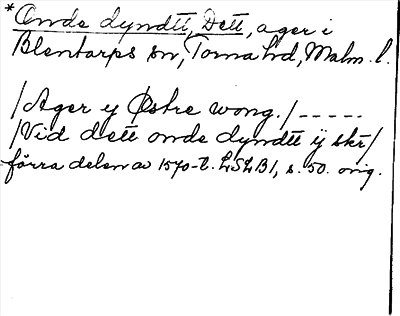 *Onde dyndtt, Dett, ager i
Blentarps sn, Torna hd, Malm. l.
/Ager y Østre wong./-----
/Vid dett onde dyndtt ÿ skr/
förra delen av 1570-t. LSLB1, s. 50. orig.